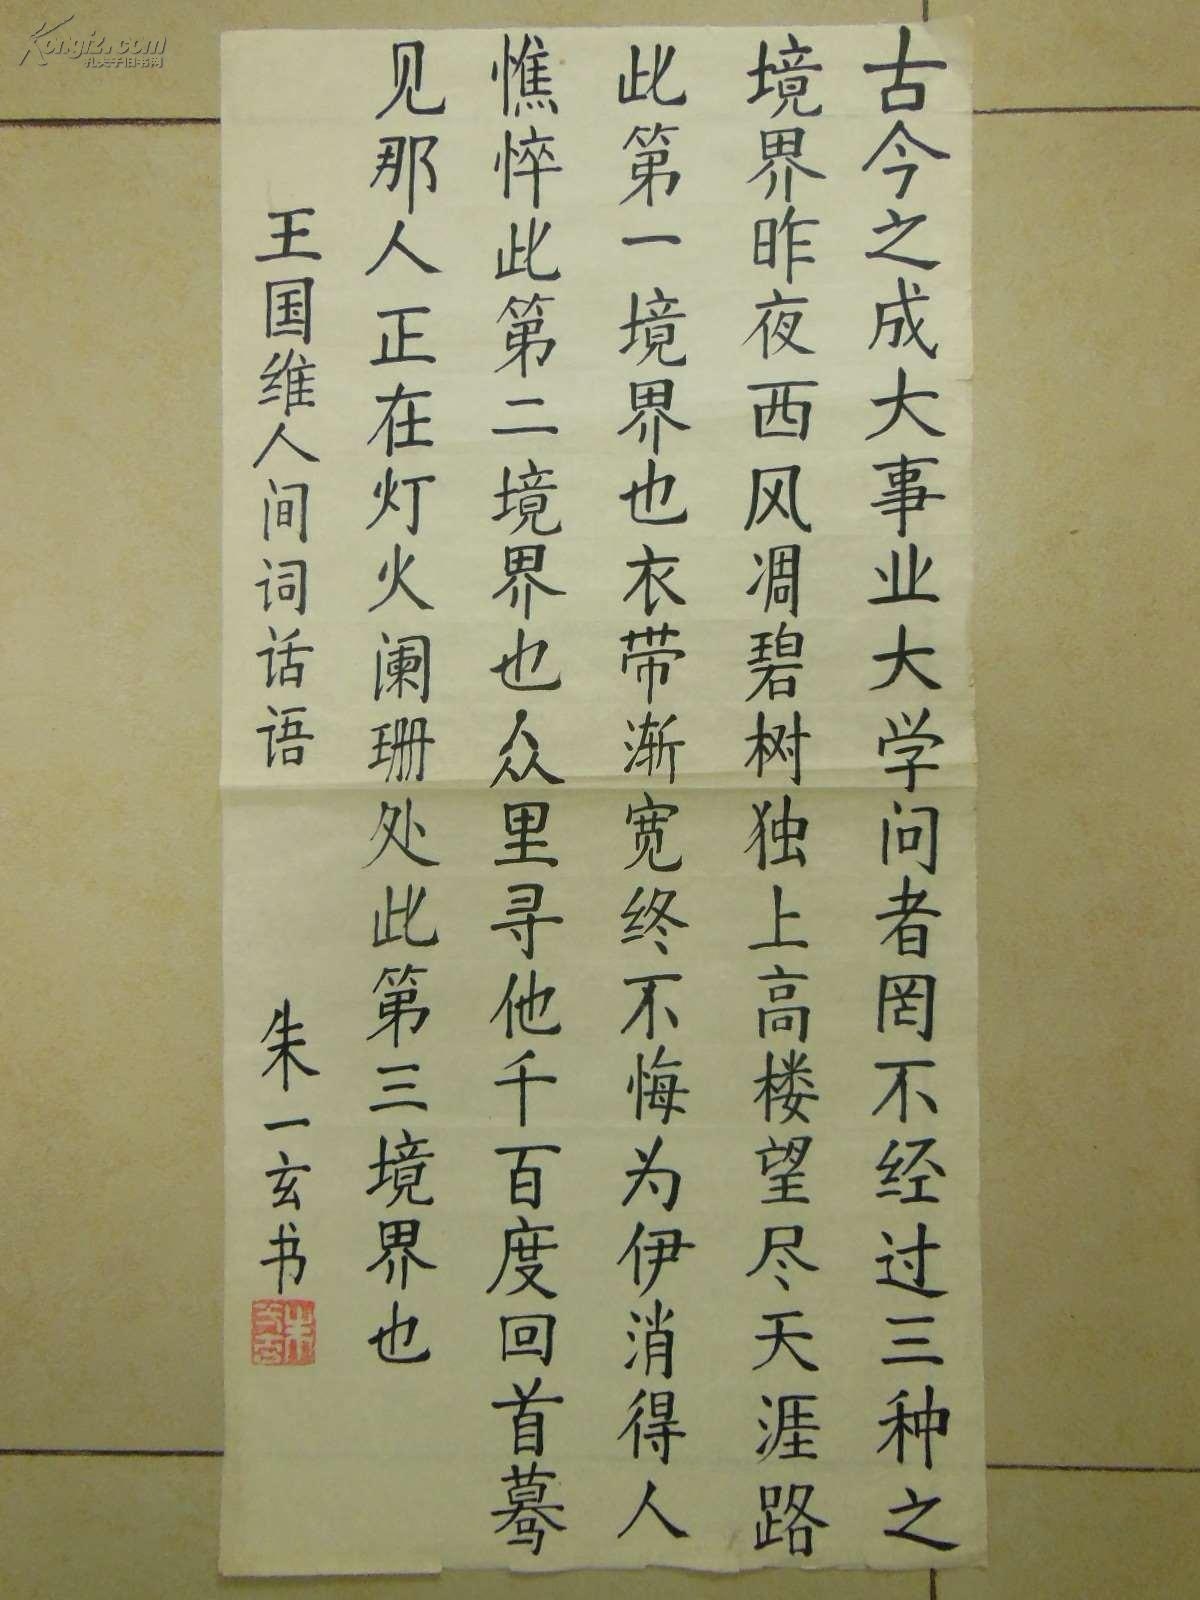 古今之成大事业大学问者罔不经过三种之
境界昨夜西风凋碧树独上高楼望尽天涯路
此第一境界也衣带渐宽终不悔为伊消得人
憔悴此第二境界也众里寻他千百度回首蓦
见那人正在灯火阑珊处此第三境界也
王国维人间词话语
朱一玄书
Kongfz.com
孔夫子旧书网